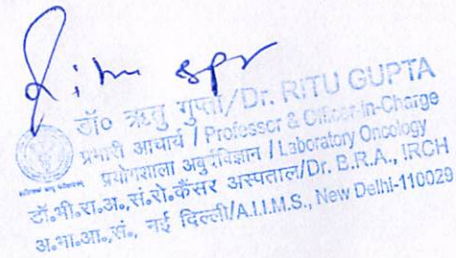 Ritu
डॉ० ऋतु गुप्ता/Dr. RITU GUPTA
प्रभारी आचार्य / Professor & Officer-In-Charge
प्रयोगशाला अर्बुदविज्ञान / Laboratory Oncology
डॉ.भी.रा.अ.,सं.रो.कैंसर अस्पताल/Dr. B.R.A., IRCH
अ.भा.आ.सं., नई दिल्ली/A.I.I.M.S., New Delhi-110029